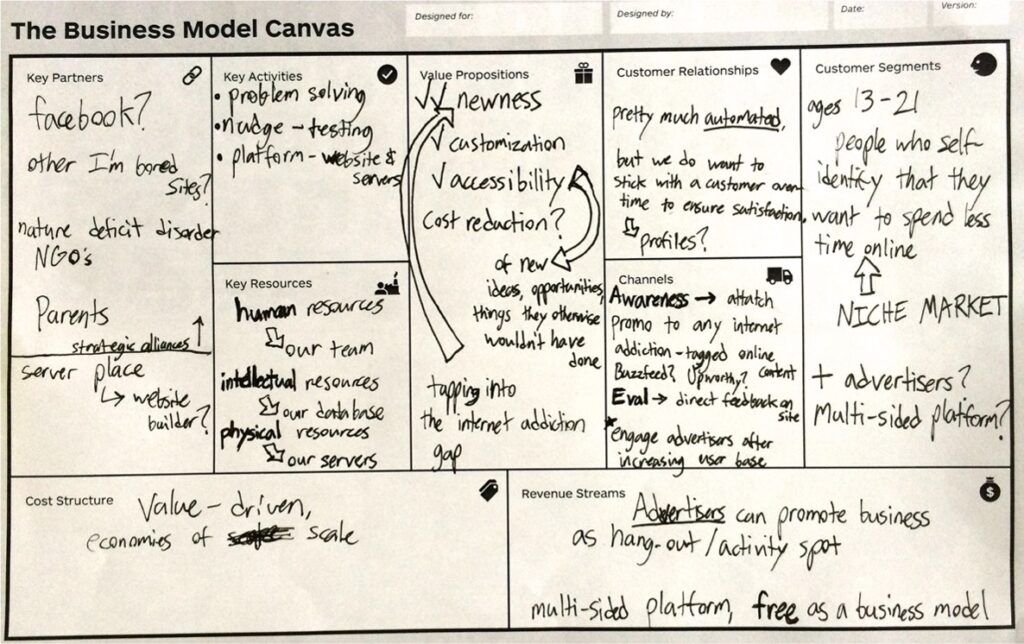 Designed for:
Designed by:
Date:
Version:
The Business Model Canvas
Key Partners
facebook?
other I'm bored
sites?
nature deficit disorder
NGO's
Parents
strategic alliances
server place
website
builder?
Key Activities
• problem solving
• nudge - testing
• platform - website &
servers
Key Resources
human resources
our team
intellectual resources
our database
physical resources
our servers
Value Propositions
newness
customization
accessibility
cost reduction?
of new
ideas, opportunities,
things they otherwise
wouldn't have
done
tapping into
the internet addiction
gap
Customer Relationships
pretty much automated,
but we do want to
stick with a customer over
time to ensure satisfaction.
profiles?
Channels
Awareness → attatch
promo to any internet
addiction-tagged online
Buzzfeed? Upworthy? content
Eval → direct feedback on
site
* engage advertisers after
increasing user base
Customer Segments
ages 13-21
people who self-
identify that they
want to spend less
time online
NICHE MARKET
+ advertisers?
multi-sided platform?
Cost Structure
Value - driven,
economies of scale
Revenue Streams
Advertisers can promote business
as hang-out/activity spot
multi-sided platform, free as a business model